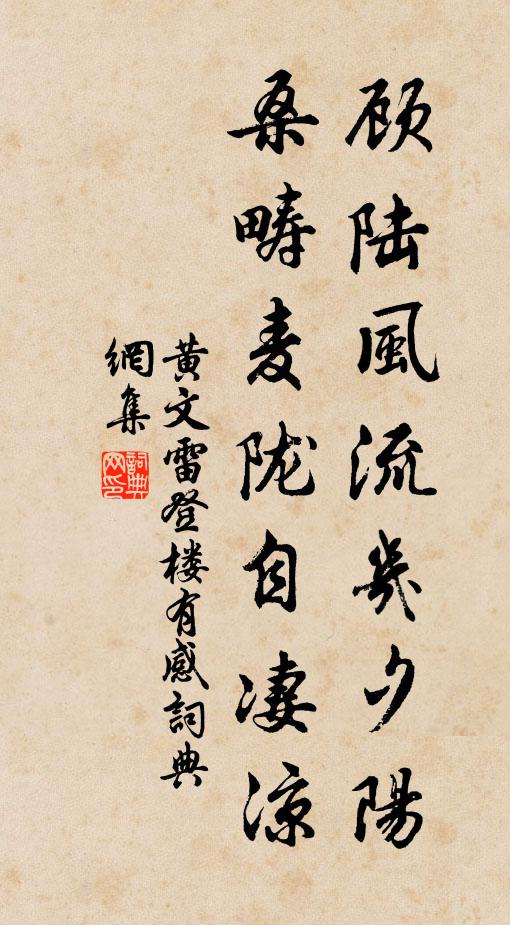 顾陆風流幾夕陽
桑疇麦陇自凄涼
黄文雷登楼有感詞典
網集
詞典
网印